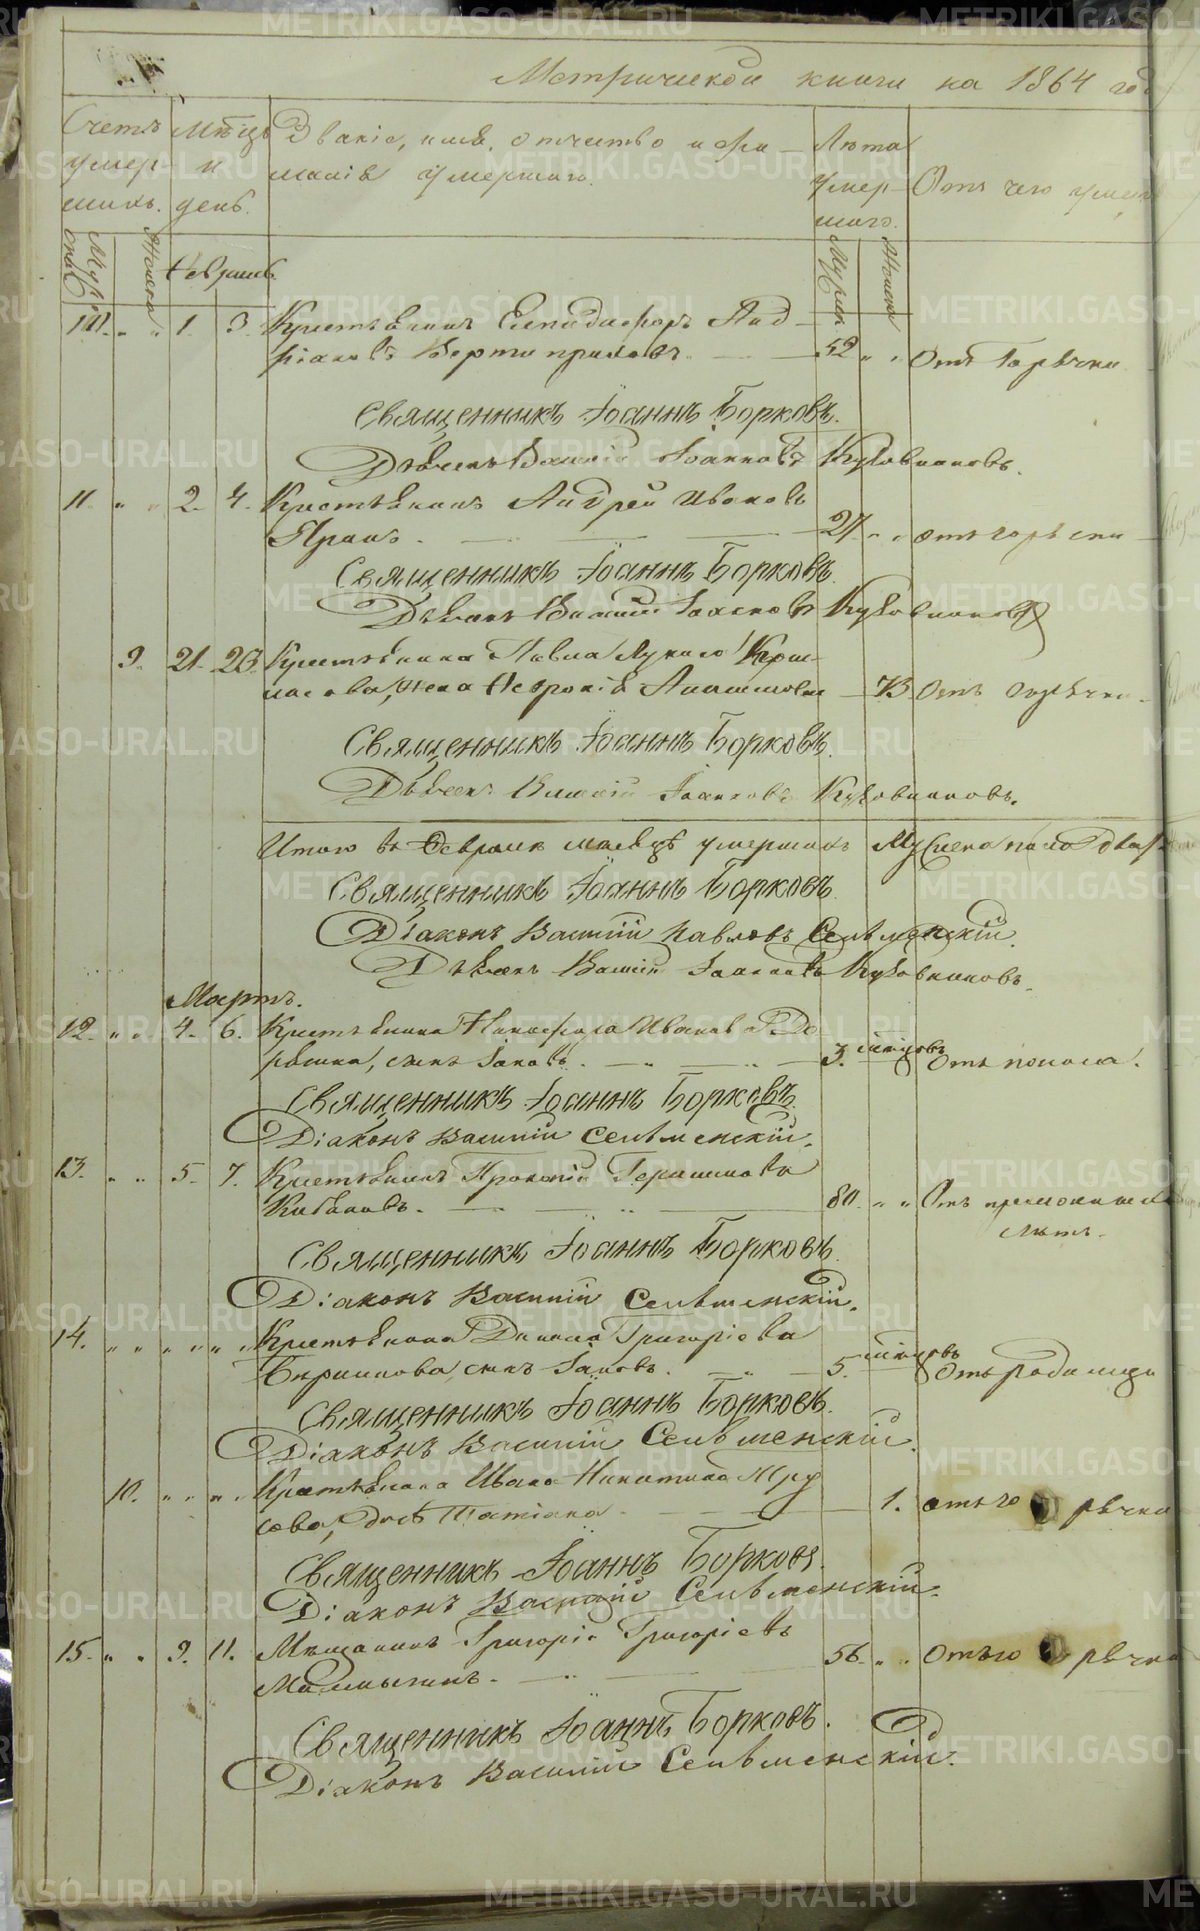 Метрической книги на 1864 год
Счетъ умер- шихъ.
Мѣсяцъ и день.
Званіе, имя, отчество и фа- милія умершаго.
Лѣта умер- шаго.
Отъ чего умеръ
Мужеска
Женска
Мужск
Женска
Февраль
10. " " 1. 3. Крестьянинъ Елпидифоръ Анд-
52 " " Отъ Горячки
Священникъ Іоаннъ Борковъ.
Дьячекъ Василій Іоанновъ Кузовниковъ.
11. " " 2. 4. Крестьянинъ Андрей Ивановъ
27 " " отъ горячки
Священникъ Іоаннъ Борковъ.
Дьячекъ Василій Іоанновъ Кузовниковъ
9. 21. 23. Крестьянина Павла Лукина
жена Февронія
73 Отъ горячки
Священникъ Іоаннъ Борковъ.
Дьячекъ Василій Іоанновъ Кузовниковъ.
Итого въ Февралѣ мѣсяцѣ умершихъ Мужеска пола два
Священникъ Іоаннъ Борковъ
Діаконъ Василій Павловъ Сельменскій.
Дьячекъ Василій Іоанновъ Кузовниковъ.
Мартъ.
12. " " 4. 6. Крестьянина Никифора Иванова
сынъ Іаковъ. 3. мѣсяцовъ Отъ поноса.
Священникъ Іоаннъ Борковъ.
Діаконъ Василій Сельменскій.
13. " " 5. 7. Крестьянинъ Прокопій Герасимовъ
80. " " Отъ
лѣтъ.
Священникъ Іоаннъ Борковъ.
Діаконъ Василій Сельменскій.
14. " " " " " " Крестьянина Данила Григоріева
сынъ Іаковъ. 5. мѣсяцовъ Отъ родимца
Священникъ Іоаннъ Борковъ.
Діаконъ Василій Сельменскій.
10. " " " " Крестьянина Ивана Никитина
дочь Татіана 1. отъ го рячки
Священникъ Іоаннъ Борковъ.
Діаконъ Василій Сельменскій.
15. " " 9. 11. Мѣщанинъ Григорій Григоріевъ
56. " " Отъ го рячки
Священникъ Іоаннъ Борковъ.
Діаконъ Василій Сельменскій.
METRIKI.GASO-URAL.RU